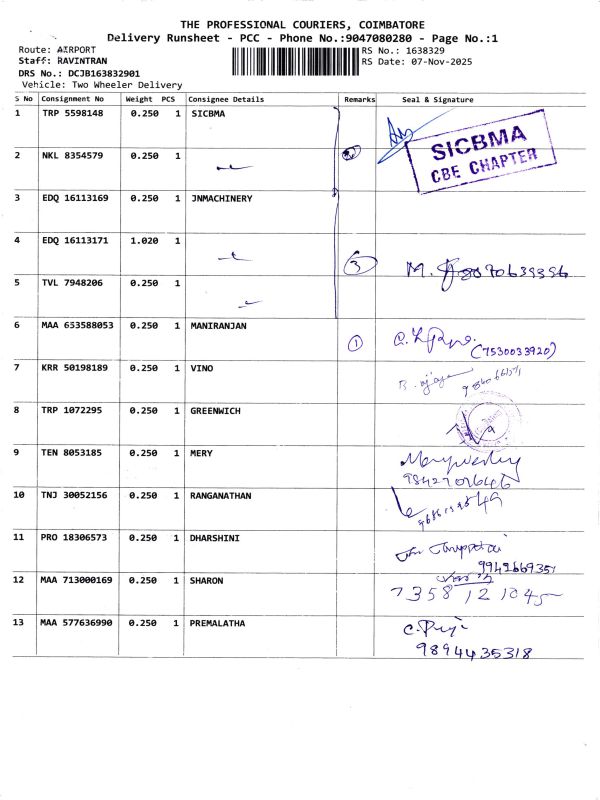 THE PROFESSIONAL COURIERS, COIMBATORE
Delivery Runsheet - PCC - Phone No.:9047080280 - Page No.:1
Route: AIRPORT RS No.: 1638329
Staff: RAVINTRAN RS Date: 07-Nov-2025
DRS No.: DCJB163832901
Vehicle: Two Wheeler Delivery
S No Consignment No Weight PCS Consignee Details Remarks Seal & Signature
1 TRP 5598148 0.250 1 SICBMA
SICBMA
CBE CHAPTER
2 NKL 8354579 0.250 1
3 EDQ 16113169 0.250 1 JNMACHINERY
4 EDQ 16113171 1.020 1
3
5 TVL 7948206 0.250 1
6 MAA 653588053 0.250 1 MANIRANJAN
1
(7530033920)
7 KRR 50198189 0.250 1 VINO
8 TRP 1072295 0.250 1 GREENWICH
9 TEN 8053185 0.250 1 MERY
10 TNJ 30052156 0.250 1 RANGANATHAN
11 PRO 18306573 1 0.250 DHARSHINI
12 MAA 713000169 0.250 1 SHARON
7358121045
13 MAA 577636990 0.250 1 PREMALATHA
C. Priji
9894435318